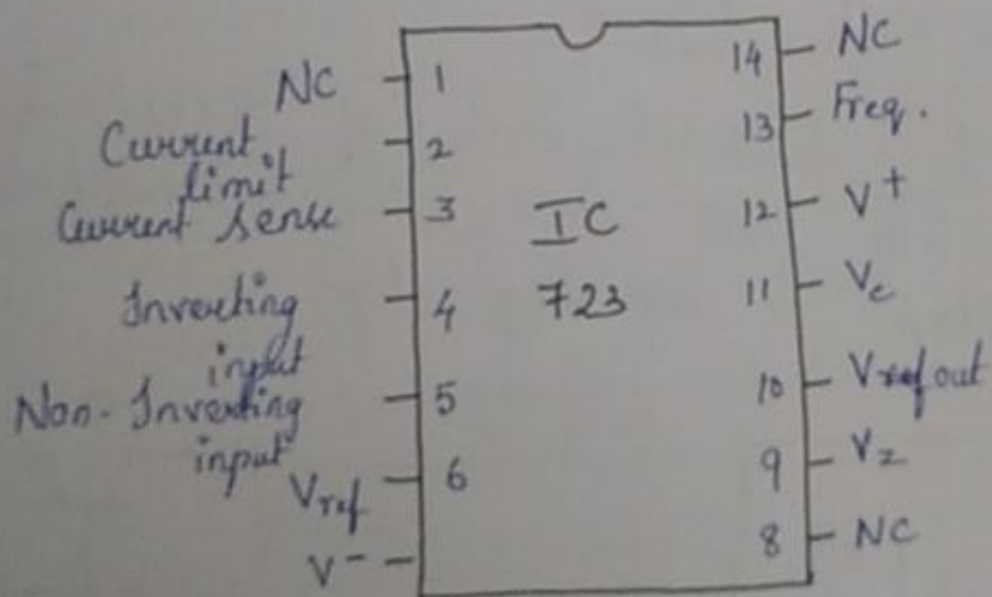 NC 1
Current limit 2
Current sense 3
Inverting input 4
Non-Inverting input 5
Vref 6
V-
IC
723
14 NC
13 Freq.
12 V+
11 Vc
10 Vout
9 Vz
8 NC